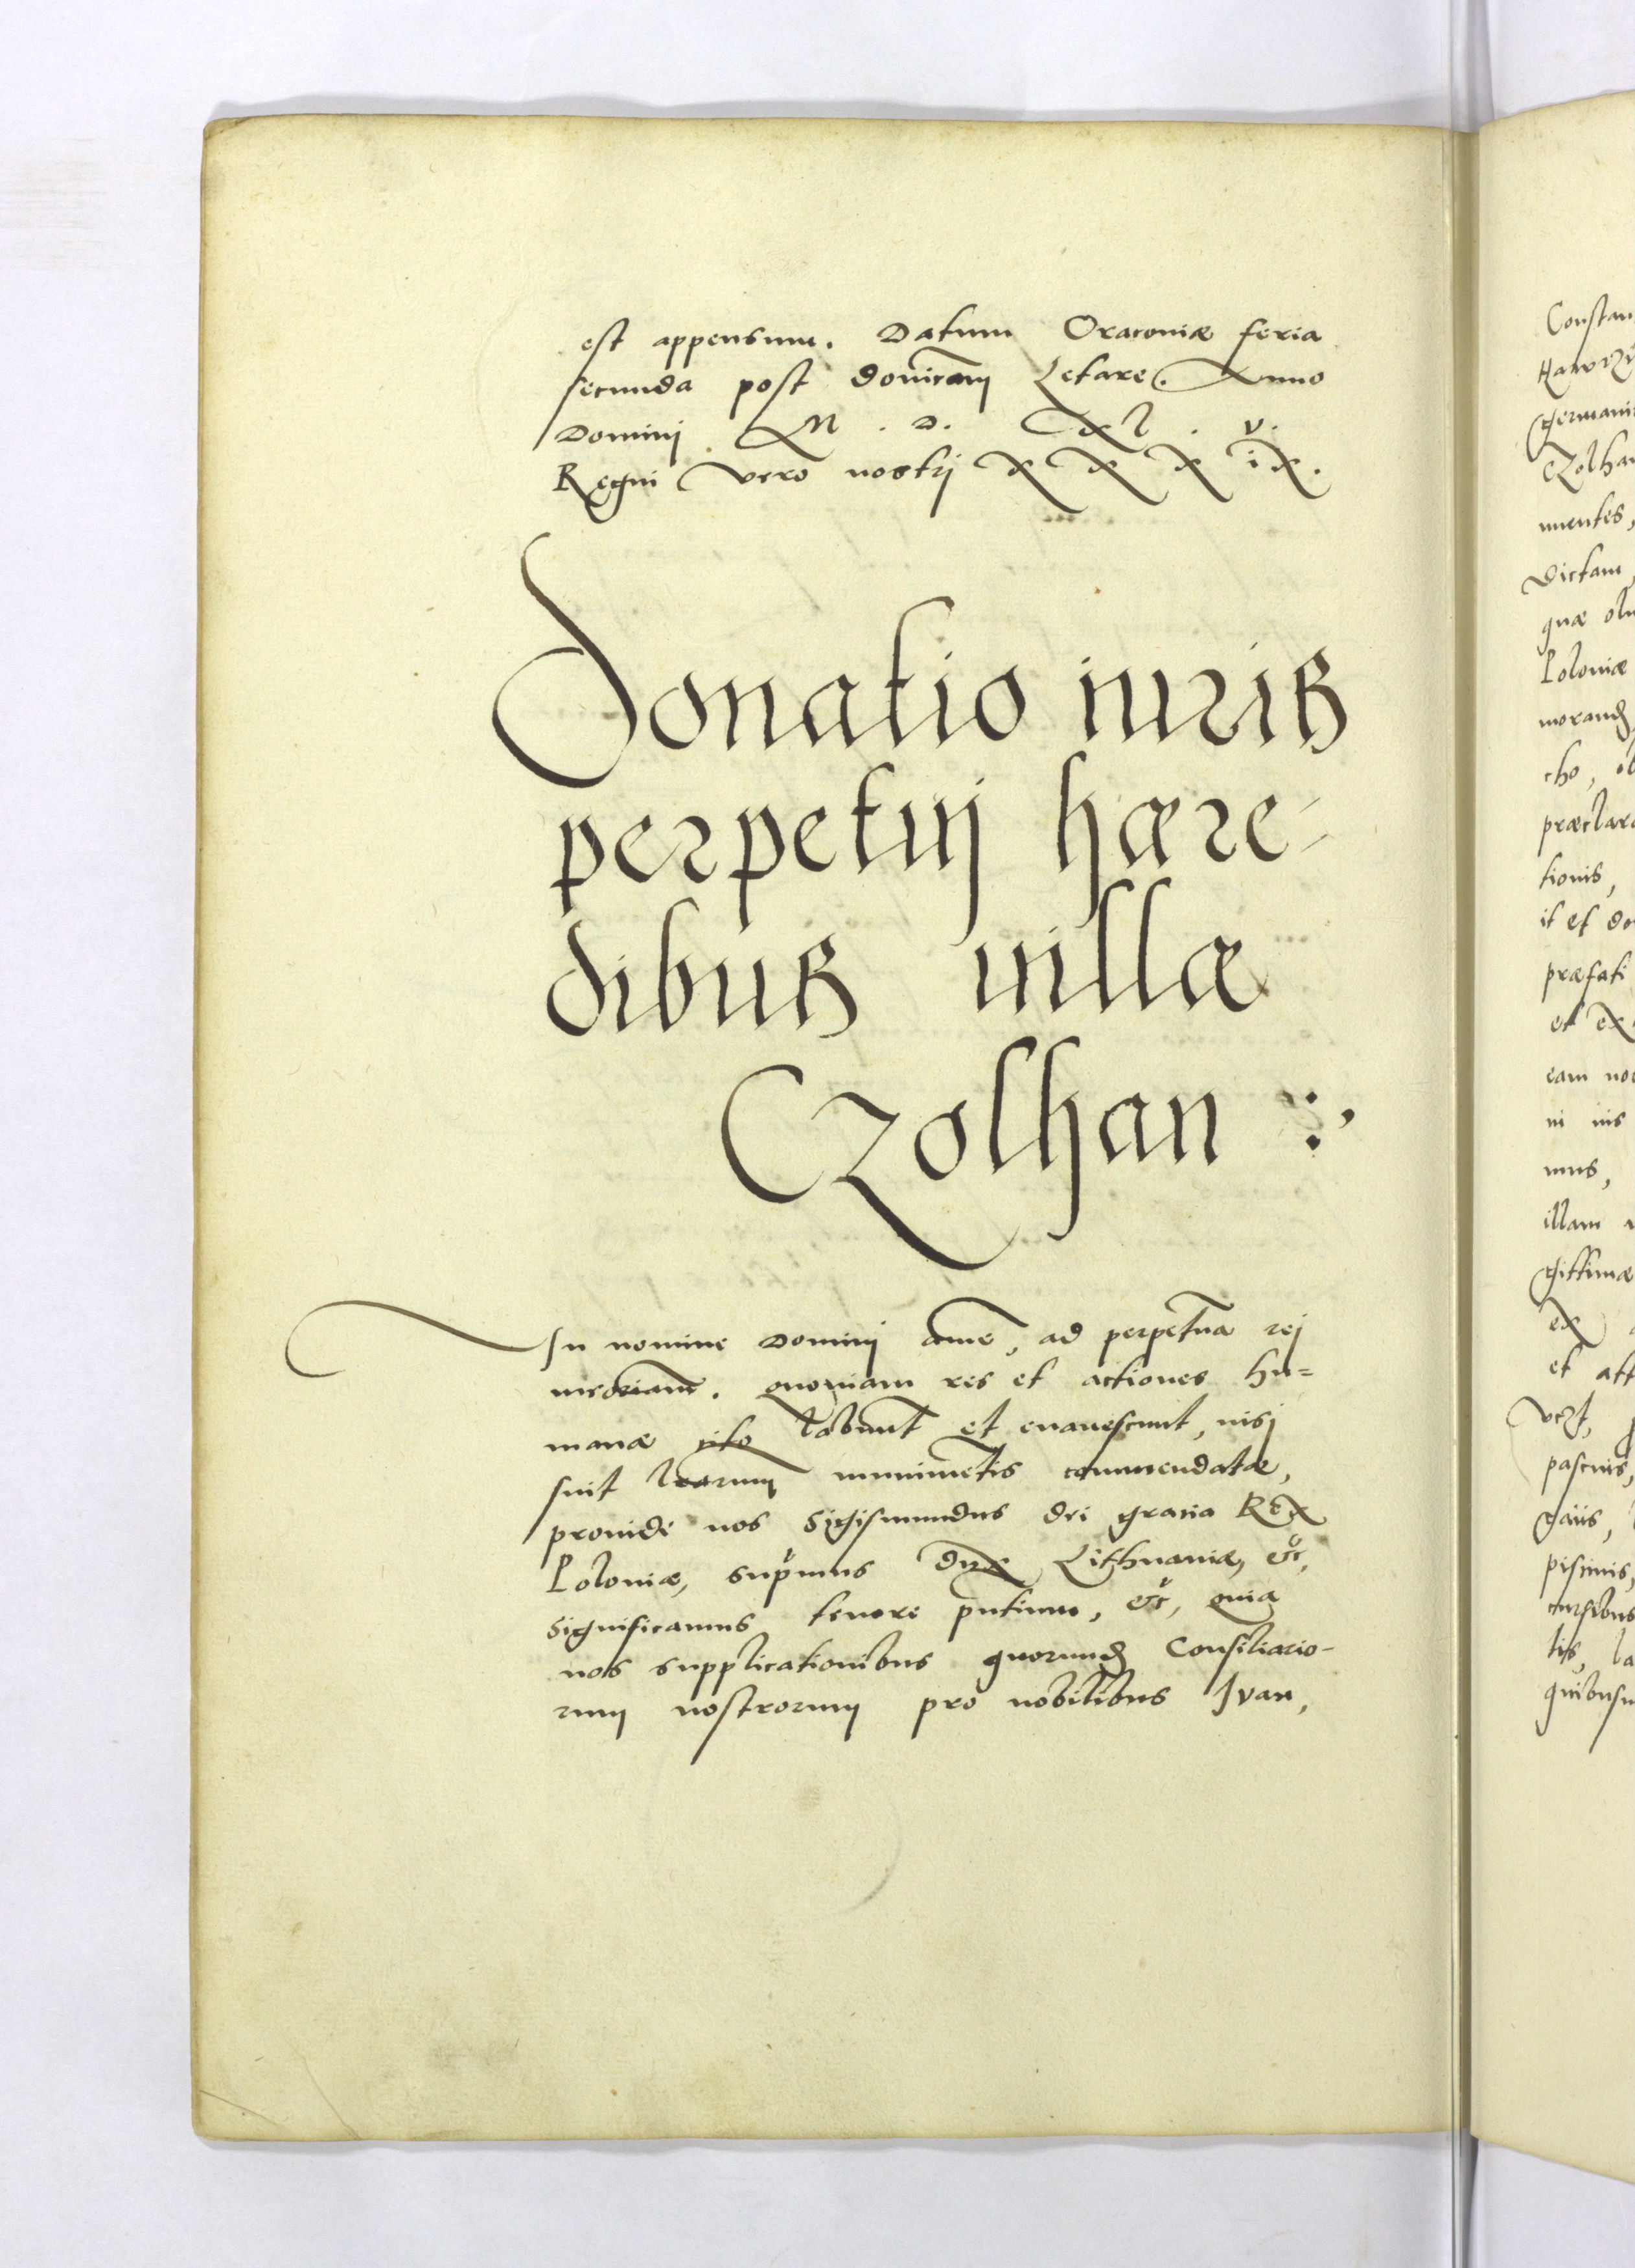 est appensum. Datum Cracoviæ feria
secunda post donicam Letare. Anno
Dominj M. D. Cxl. v.
Regni vero nostrj xxxix.
Donatio iuris
perpetuj hære-
dibus uillæ
CZolhan
In nomine Dominj ame, ad perpetua rej
memoriam. Quoniam res et actiones hu=
manæ cito labunt et euanescunt, nisj
sint lrarum munimetis commendatæ,
proinde nos Sigismundus dei gratia REx
Poloniæ, supmus dux Lithuaniæ, &c,
significamus tenore pntium, &c, quia
nos supplicationibus quorund Consiliario-
rum nostrorum pro nobilibus Ivan,
Constan
Hawrzy
germani
CZolha
nuentes,
Dictam
quæ oli
Poloniæ
morand
cho, ob
præclara
tionis,
it et do
præfati
et ex
eam no
in iis
mus,
illam
gittimæ
ex
et att
vezt,
pascuis,
gaiis,
piscinis,
cursibus
tis, la
quibusu